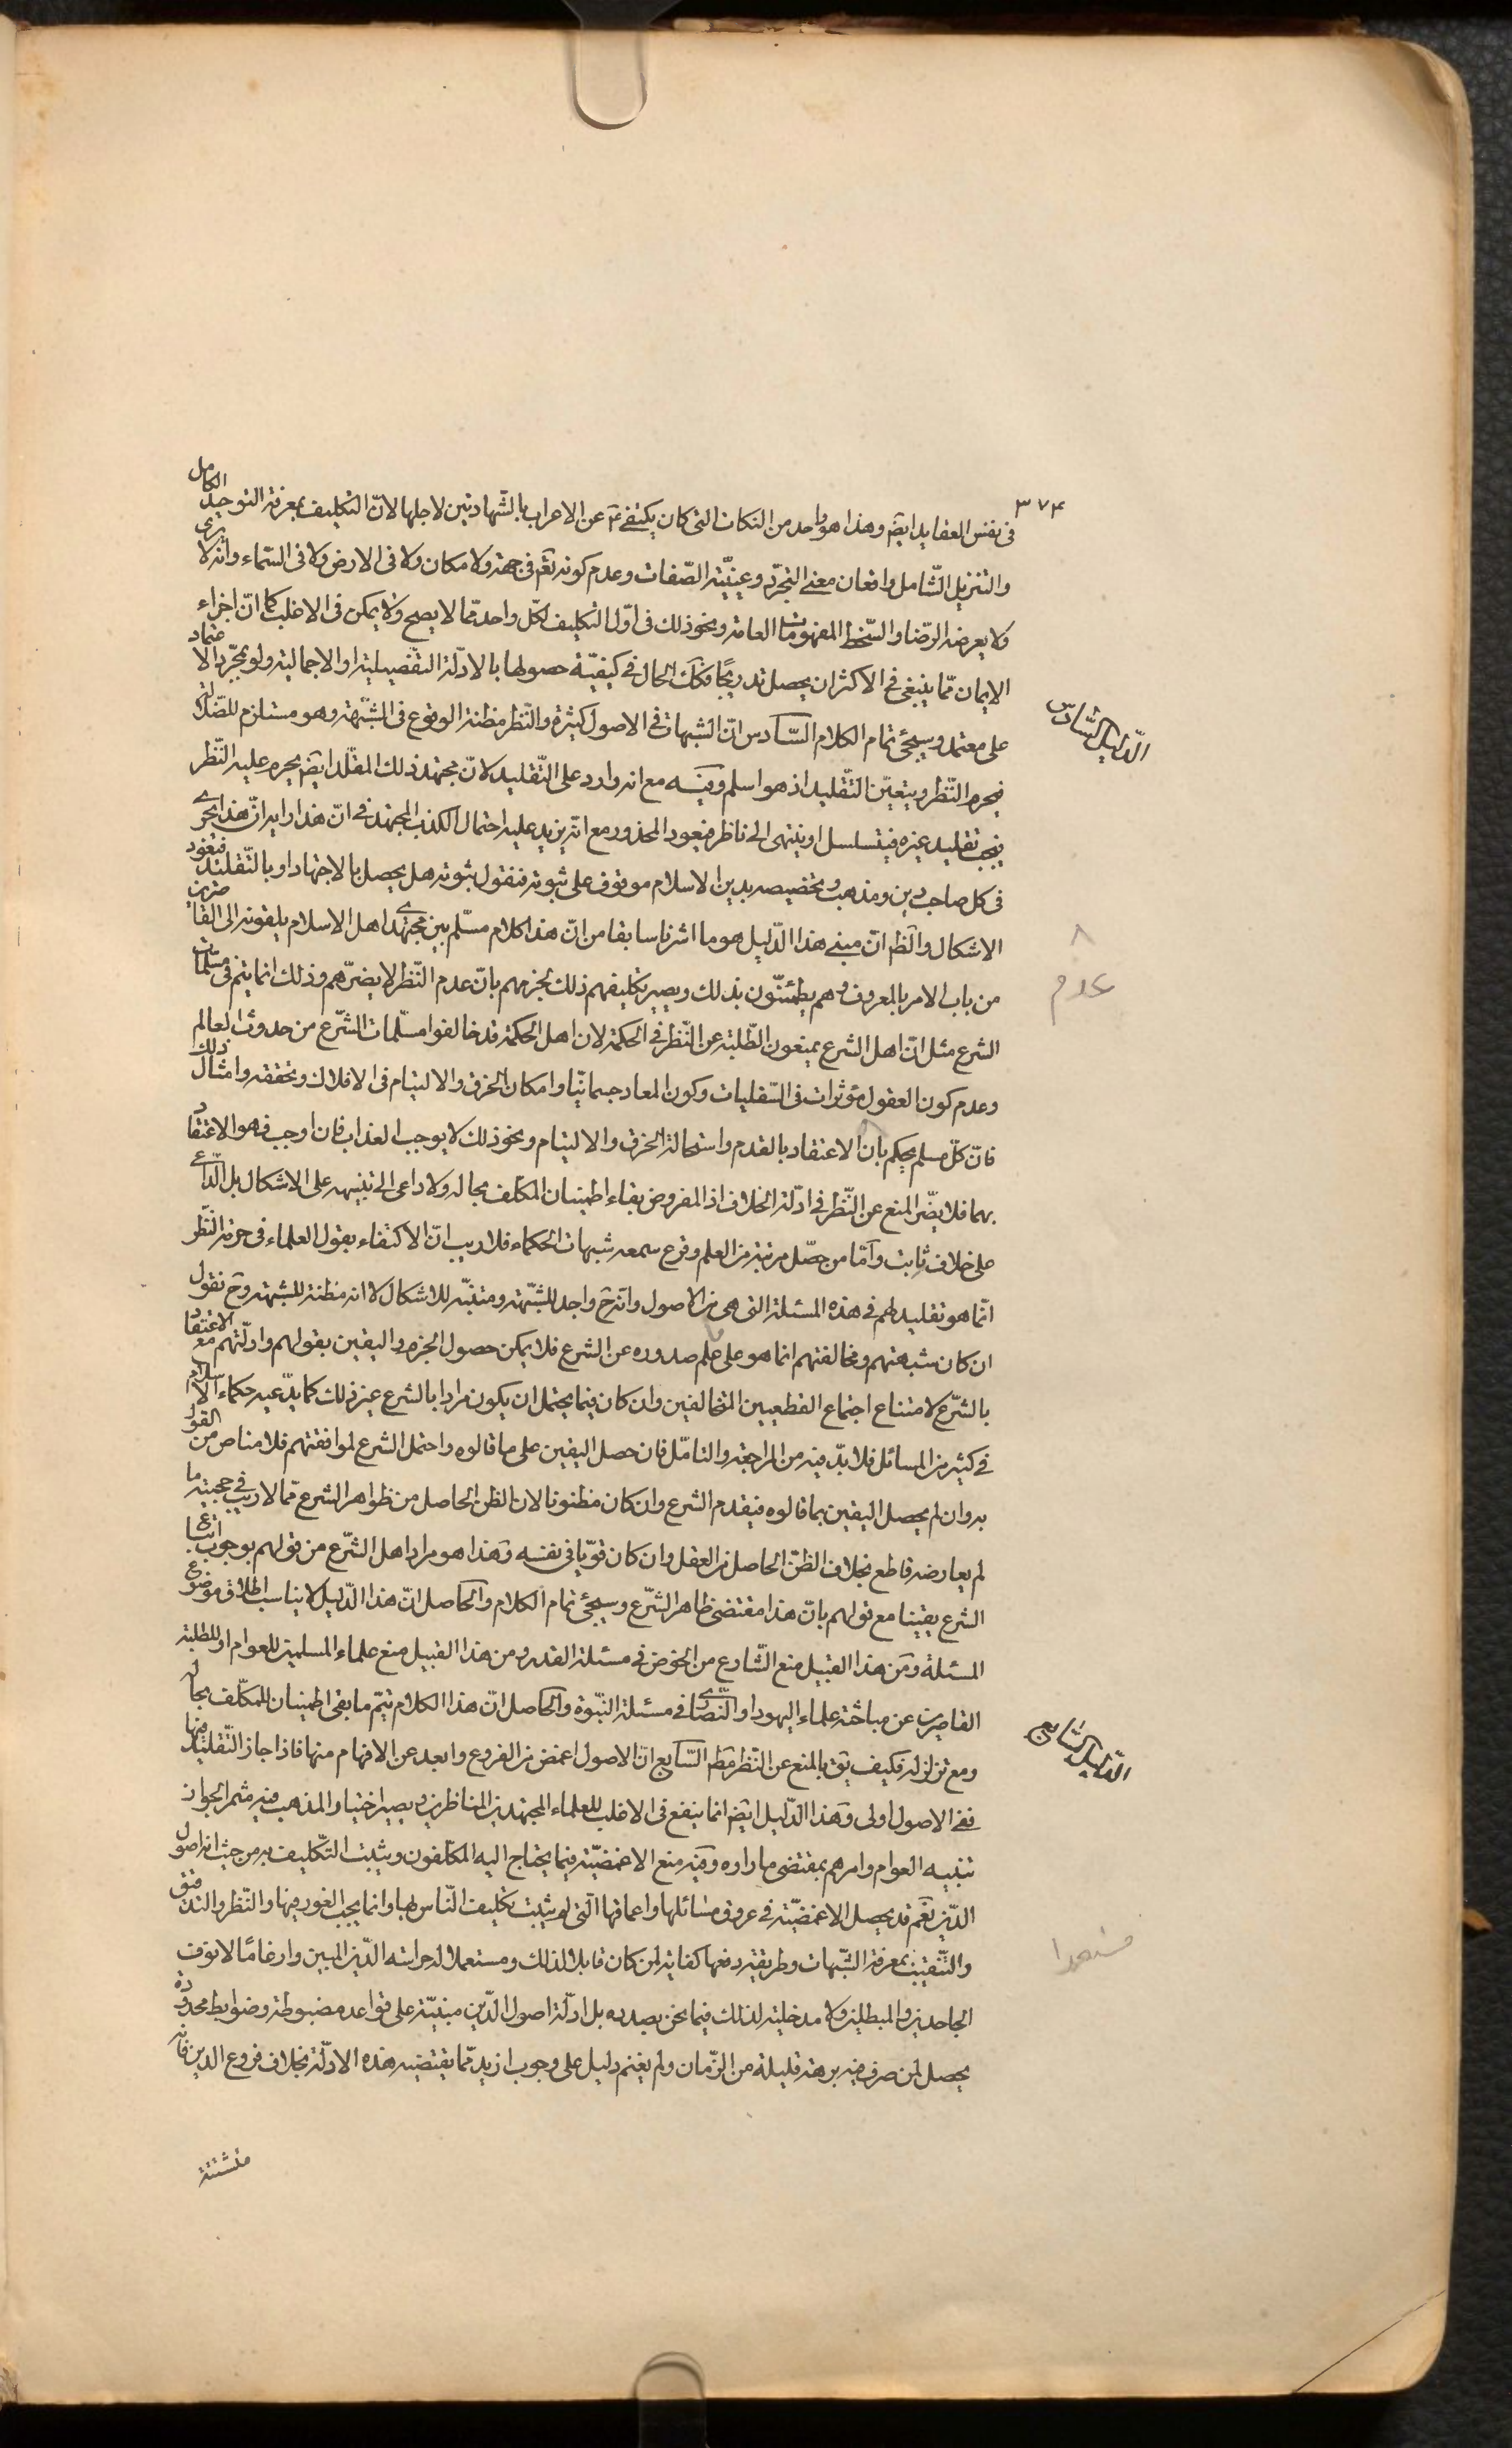 ٣٧۴
فى نفس العقايد ايضً وهذا هو واحد من النكات التى كان يكتفى عن الاعراب بالشهادتين لاجلها لانّ التكليف بمعرفة التوحيد الكامل
والتنزيل الشّامل واذعان معنى التجرّد وعينيّة الصّفات وعدم كونه تعَ فى جهة ولا مكان ولا فى الارض ولا فى السّماء وانّه لا يرى
ولا يعرضه الرّضا والسّخط المفهومات العامة ونحو ذلك فى اوّل التكليف لكلّ واحد ممّا لا يصح ولا يمكن فى الاغلب كما انّ اجزاء
الايمان ممّا ينبغى فى الاكثر ان يحصل تدريجًا فكَكَ الحال فى كيفيّة حصولها بالادلّة التفصيلية او الاجمالية ولو بمجرّد الاعتماد
على معتمد وسيجئ تمام الكلام السّادس انّ الشبهات فى الاصول كثيرة والنّظر مظنة الوقوع فى الشبّهة وهو مستلزم للضّلالة
فيحرم النّظر ويتعيّن التّقليد اذ هو اسلم وفيَه مع انه وارد على التّقليد لانّ مجتهد ذلك المقلّد ايضً يحرم عليه النّظر
فيجب تقليد غيره فيتسلسل او ينتهى الى ناظر فيعود المحذور مع انّه يزيد عليه احتمال الكذب المجتهد فى انّ هذا رايه انّ هذا يجرى
فى كل صاحب دين ومذهب وتخصيصه بدين الاسلام موقوف على ثبوته فنقول ثبوته هل يحصل بالاجتهاد او بالتّقليد فيعود
الاشكال والظَ انّ مبنى هذا الدّليل هو ما اشرنا سابقا من انّ هذا كلام مسلّم بين مجتهدى اهل الاسلام يلقونه الى القاصرين
من باب الامر بالمعروف وهم يطمئنّون بذلك ويصير تكليفهم ذلك لجزمهم بانّ عدم النّظر لا يضرّهم وذلك انما يتم فى مسلّمات
الشرع مثل انّ اهل الشرع يمنعون الطّلبة عن النّظر فى الحكمة لان اهل الحكمة قد خالفوا مسلّمات الشّرع من حدوث العالم
وعدم كون العقول مؤثرات فى السّفليات وكون المعاد جسمانيّا وامكان الخرق والالتيام فى الافلاك وتحققه وامثال ذلك
فانّ كلّ مسلم يحكم بان الاعتقاد بالقدم واستحالة الخرق والالتيام ونحو ذلك لا يوجب العذاب فان اوجب فهو الاعتقاد
بهما فلا يضّر المنع عن النّظر فى ادلّة الخلاف اذ المفروض بقاء اطمينان المكلف بحاله ولا داعى الى تنبيهه على الاشكال بل الدّاعى
على خلاف ثابت وآمّا من حصّل مرتبة من العلم وقرع سمعه شبهات الحكماء فلا ريب انّ الاكتفاء بقول العلماء فى حرمة النّظر
انّما هو تقليد لهم فى هذه المسئلة التى هى من الاصول وانّه حَ واجد للشبّهة ومتنبّه للاشكال لا انه مظنة للشبهة وحَ نقول
ان كان شبهتهم ومخالفتهم انما هو على علم صدوره عن الشرع فلا يمكن حصول الجزم واليقين بقولهم وادلّتهم مع الاعتقاد
بالشّرع لامتناع اجتماع القطعيين المتخالفين وان كان فيما يحتمل ان يكون مراد بالشرع غير ذلك كما يدّعيه حكماء الاسلام
فى كثير من المسائل فلا بدّ فيه من المراجعة والتامّل فان حصل اليقين على ما قالوه واحتمل الشرع لموافقتهم فلا مناص من القول
به وان لم يحصل اليقين بما قالوه فيقدم الشرع وان كان مظنونا لان الظن الحاصل من ظواهر الشرع ممّا لا ريب فى حجيته ما
لم يعارضه قاطع بخلاف الظنّ الحاصل من العقل وان كان قويّا فى نفسه وهَذا هو مراد اهل الشّرع من قولهم بوجوب اتباع
الشرع يقينا مع قولهم بانّ هذا مقتضى ظاهر الشّرع وسيجئ تمام الكلام والحَاصل انّ هذا الدّليل لا يناسب اطلاق موضوع
المسئلة ومَن هذا القبيل منع الشّارع من الخوض فى مسئلة القدر ومن هذا القبيل منع علماء المسلمين للعوام او للطلبة
القاصرين عن مباحثة علماء اليهود او النّصارى فى مسئلة النبّوة والحَاصل انّ هذا الكلام يتمّ ما بقى اطمينان للمكلّف بحاله
ومع تزلزله فكيف يقَ بالمنع عن النّظر مطَم السّابع انّ الاصول اغمض من الفروع وابعد عن الافهام منها فاذا جاز التّقليد فيها
ففى الاصول اولى وهَذا الدّليل ايضً انما ينفع فى الاغلب للعلماء المجتهدين المناظرين ويصير اختيار المذهب فيه مثمر الجواز
تنبيه العوام وامرهم بمقتضى ما راوه وفيَه منع الاغمضيّة فيما يحتاج اليه المكلّفون ويثبت التّكليف به من حيث انه اصول
الدّين نعَم قد يحصل الاغمضيّة فى عروق مسائلها واعماقها الّتى لم يثبت تكليف النّاس بها وانما يجب الغور فيها والنّظر والتدقيق
والتّفتيش بمعرفة الشّبهات وطريقة دفعها كفاية لمن كان قابلا لذلك ومستعملا لحراسة الدّين المبين وارغامًا لانوف
الجاحدين والمبطلين ولا مدخلية لذلك فيما نحن بصدده بل ادلّة اصول الدّين مبنيّة على قواعد مضبوطة وضوابط محدودة
يحصل لمن صرف فيه برهة قليلة من الزّمان ولم يقم دليل على وجوب ازيد ممّا يقتضيه هذه الادلّة بخلاف فروع الدين فانه
الدّليل السّادس
عدم
الدّليل السّابع
مستعدا